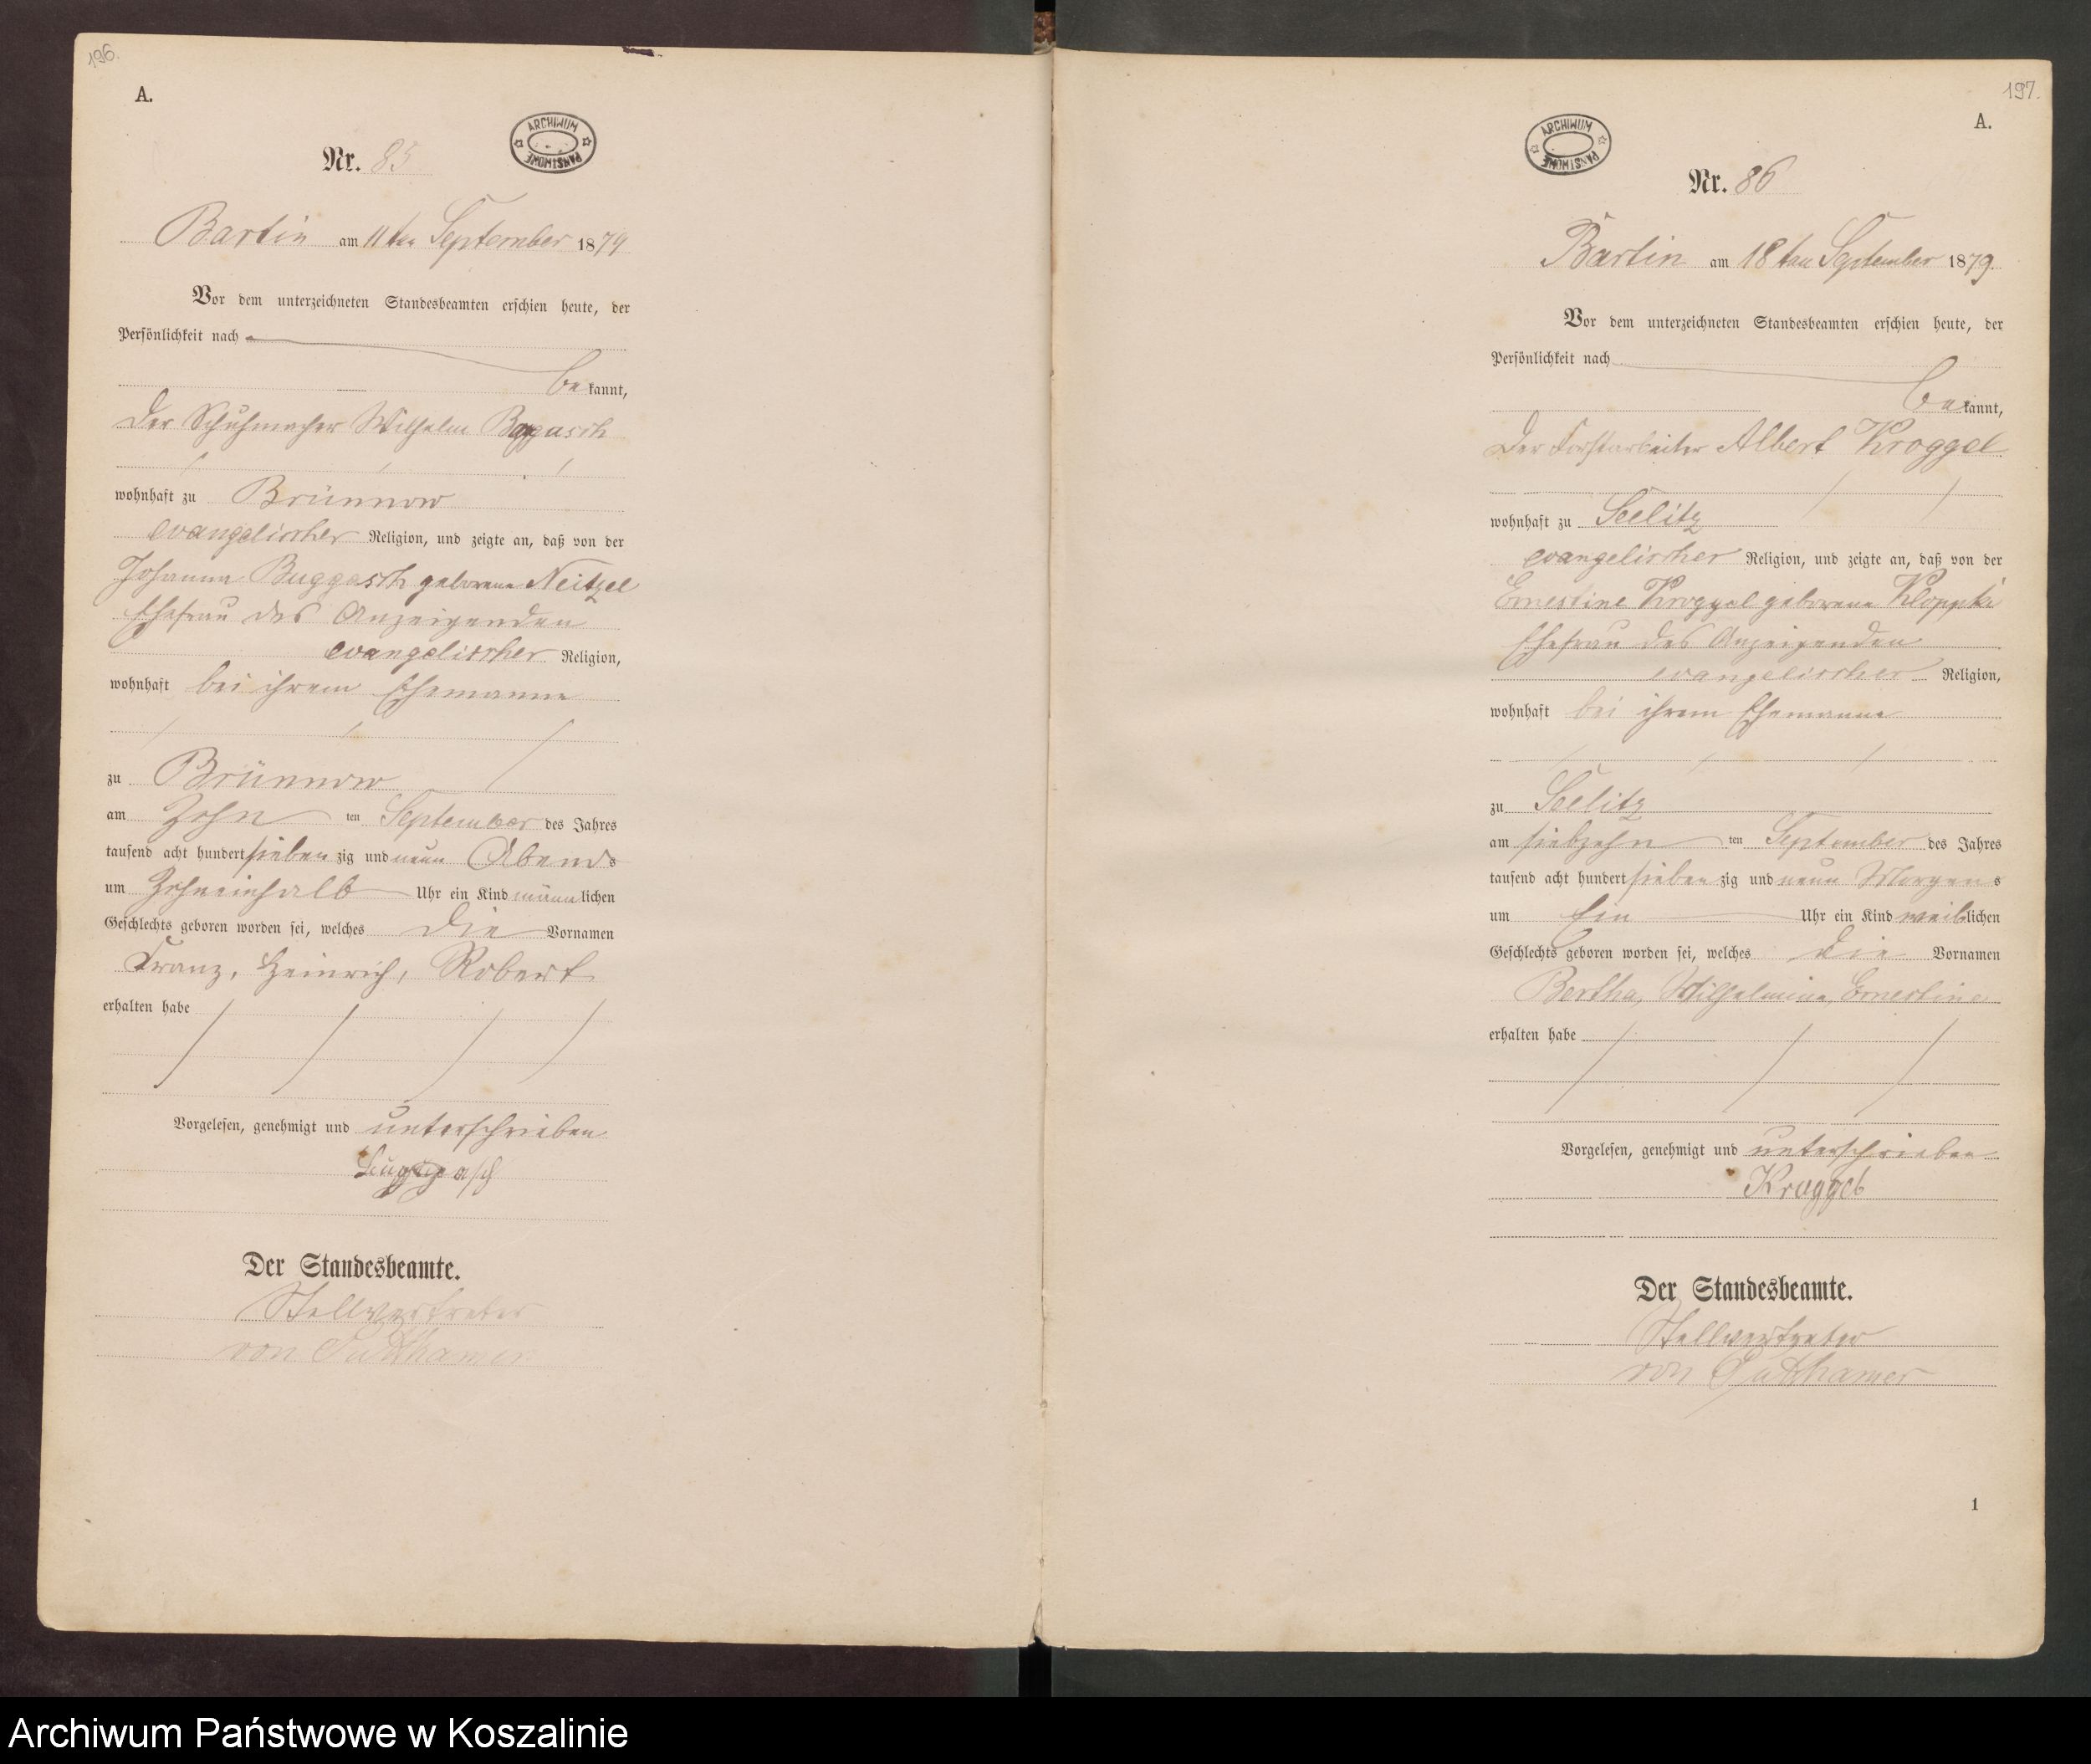 196.
A.
ARCHIWUM PAŃSTWOWE
Nr. 85
Bartin am 11ten September 1879
Vor dem unterzeichneten Standesbeamten erschien heute, der
Persönlichkeit nach
bekannt,
der Schuhmacher Wilhelm
wohnhaft zu Brünnow
evangelischer Religion, und zeigte an, daß von der
Johanna Buggasch geborene Neitzel
Ehefrau des Anzeigenden
evangelischer Religion,
wohnhaft bei ihrem Ehemanne
zu Brünnow
am Zehn ten September des Jahres
tausend acht hundert siebenzig und neun Abends
um Zehneinhalb Uhr ein Kind männlichen
Geschlechts geboren worden sei, welches die Vornamen
Franz, Heinrich, Robert
erhalten habe
Vorgelesen, genehmigt und unterschrieben
Der Standesbeamte.
Stellvertreter
von Puttkamer
197.
A.
ARCHIWUM PAŃSTWOWE
Nr. 86
Bartin am 18ten September 1879.
Vor dem unterzeichneten Standesbeamten erschien heute, der
Persönlichkeit nach
bekannt,
Der Forstarbeiter Albert Kroggel
wohnhaft zu Seelitz
evangelischer Religion, und zeigte an, daß von der
Ernestine Kroggel geborene
Ehefrau des Anzeigenden
evangelischer Religion,
wohnhaft bei ihrem Ehemanne
zu Seelitz
am siebzehn ten September des Jahres
tausend acht hundert siebenzig und neun Morgens
um Ein Uhr ein Kind weiblichen
Geschlechts geboren worden sei, welches die Vornamen
Bertha, Wilhelmine, Ernestine
erhalten habe
Vorgelesen, genehmigt und unterschrieben
Kroggel
Der Standesbeamte.
Stellvertreter
von Puttkamer
1
Archiwum Państwowe w Koszalinie